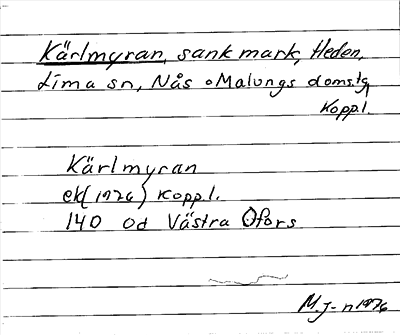 Kärlmyran, sank mark, Heden,
Lima sn, Nås o Malungs doms.tg
Kopp.l.
Kärlmyran
ek (1926) Kopp.l.
140 od Västra Ofors
M.J-n 1976